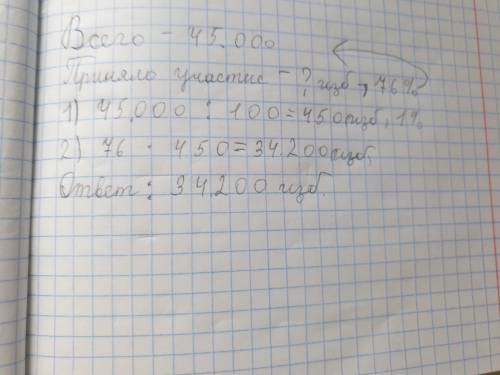 Всего - 45.000
Приняло участие - ? изб, 76%
1) 45.000 : 100 = 450 изб, 1%
2) 76 · 450 = 34.200 изб.
Ответ: 34.200 изб.